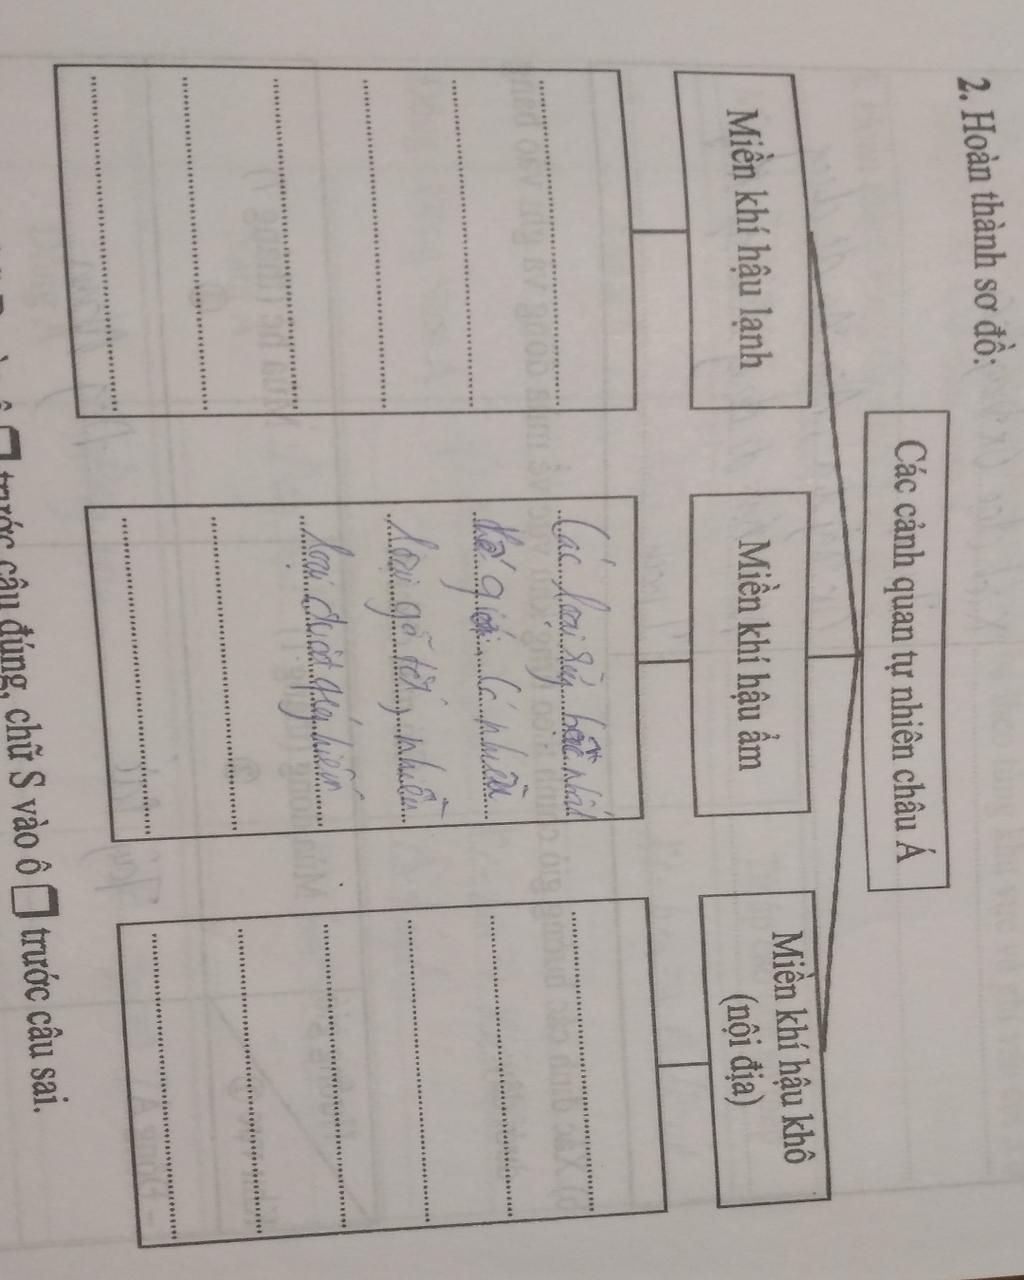 2. Hoàn thành sơ đồ:
Các cảnh quan tự nhiên châu Á
Miền khí hậu lạnh
Miền khí hậu ẩm
Miền khí hậu khô
(nội địa)
Các loại rừng bậc nhất
thế giới. Có nhiều
loại gỗ tốt, nhiều
loại đv,tv quý hiếm
trước câu đúng, chữ S vào ô □ trước câu sai.